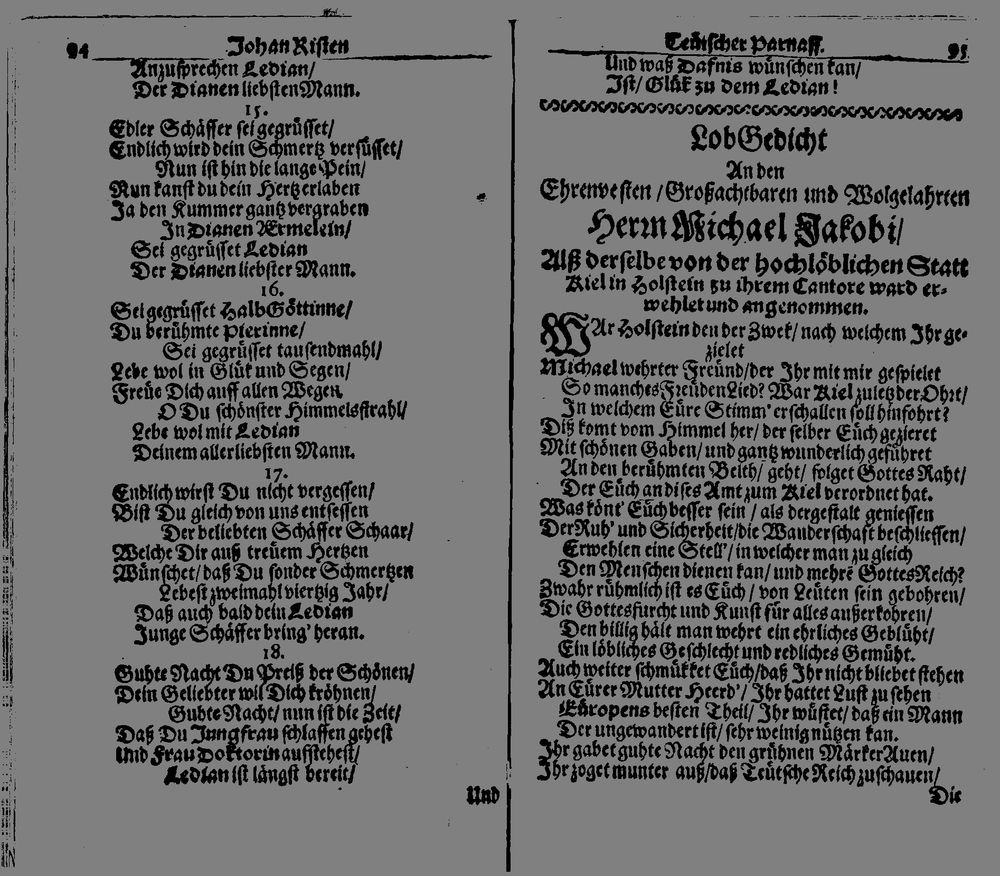 94
Johan Risten
Anzusprechen Ledian/
Der Dianen liebsten Mann.
15.
Edler Schäffer sei gegrüsset/
Endlich wird dein Schmertz versüsset/
Nun ist hin die lange Pein/
Nun kanst du dein Hertz erlaben
Ja den Kummer gantz vergraben
In Dianen Ærmelein/
Sei gegrüsset Ledian
Der Dianen liebster Mann.
16.
Sei gegrüsset HalbGöttinne/
Du berühmte Pierinne/
Sei gegrüsset tausendmahl/
Lebe wol in Glük und Segen/
Freüe Dich auff allen Wegen
O Du schönster Himmelsstrahl/
Lebe wol mit Ledian
Deinem allerliebsten Mann.
17.
Endlich wirst Du nicht vergessen/
Bist Du gleich von uns entsessen
Der beliebten Schäffer Schaar/
Welche Dir auß treüem Hertzen
Wünschet/ daß Du sonder Schmertzen
Lebest zweimahl viertzig Jahr/
Daß auch bald dein Ledian
Junge Schäffer bring' heran.
18.
Guhte Nacht Du Preiß der Schönen/
Dein Geliebter wil Dich kröhnen/
Guhte Nacht/ nun ist die Zeit/
Daß Du Jungfrau schlaffen gehest
Und Frau Doktorin aufstehest/
Ledian ist längst bereit/
Und
Teütscher Parnass.
95
Und waß Dafnis wünschen kan/
Ist/ Glük zu dem Ledian!
LobGedicht
An den
Ehrenvesten/ Großachtbaren und Wolgelahrten
Herrn Michael Jakobi/
Alß derselbe von der hochlöblichen Statt
Kiel in Holstein zu ihrem Cantore ward er-
wehlet und angenommen.
WAr Holstein den der Zwek/ nach welchem Ihr ge-
zielet
Michael wehrter Freünd/ der Ihr mit mir gespielet
So manches FreüdenLied? War Kiel zuletz der Ohrt/
In welchem Eüre Stimm' erschallen soll hinfohrt?
Diß komt vom Himmel her/ der selber Eüch gezieret
Mit schönen Gaben/ und gantz wunderlich geführet
An den berühmten Belth/ geht/ folget Gottes Raht/
Der Eüch an dises Amt zum Kiel verordnet hat.
Was könt' Eüch besser sein/ als dergestalt geniessen
Der Ruh' und Sicherheit/ die Wanderschaft beschliessen/
Erwehlen eine Stell'/ in welcher man zu gleich
Den Menschen dienen kan/ und mehrē Gottes Reich?
Zwahr rühmlich ist es Eüch/ von Leüten sein gebohren/
Die Gottesfurcht und Kunst für alles außerkohren/
Den billig hält man wehrt ein ehrliches Geblüht/
Ein löbliches Geschlecht und redliches Gemüht.
Auch weiter schmükket Eüch/ daß Ihr nicht bliebet stehen
An Eürer Mutter Heerd'/ Ihr hattet Lust zu sehen
Eüropens besten Theil/ Ihr wüstet/ daß ein Mann
Der ungewandert ist/ sehr weinig nützen kan.
Ihr gabet guhte Nacht den grühnen Märker Auen/
Ihr zoget munter auß/ daß Teütsche Reich zuschauen/
Die